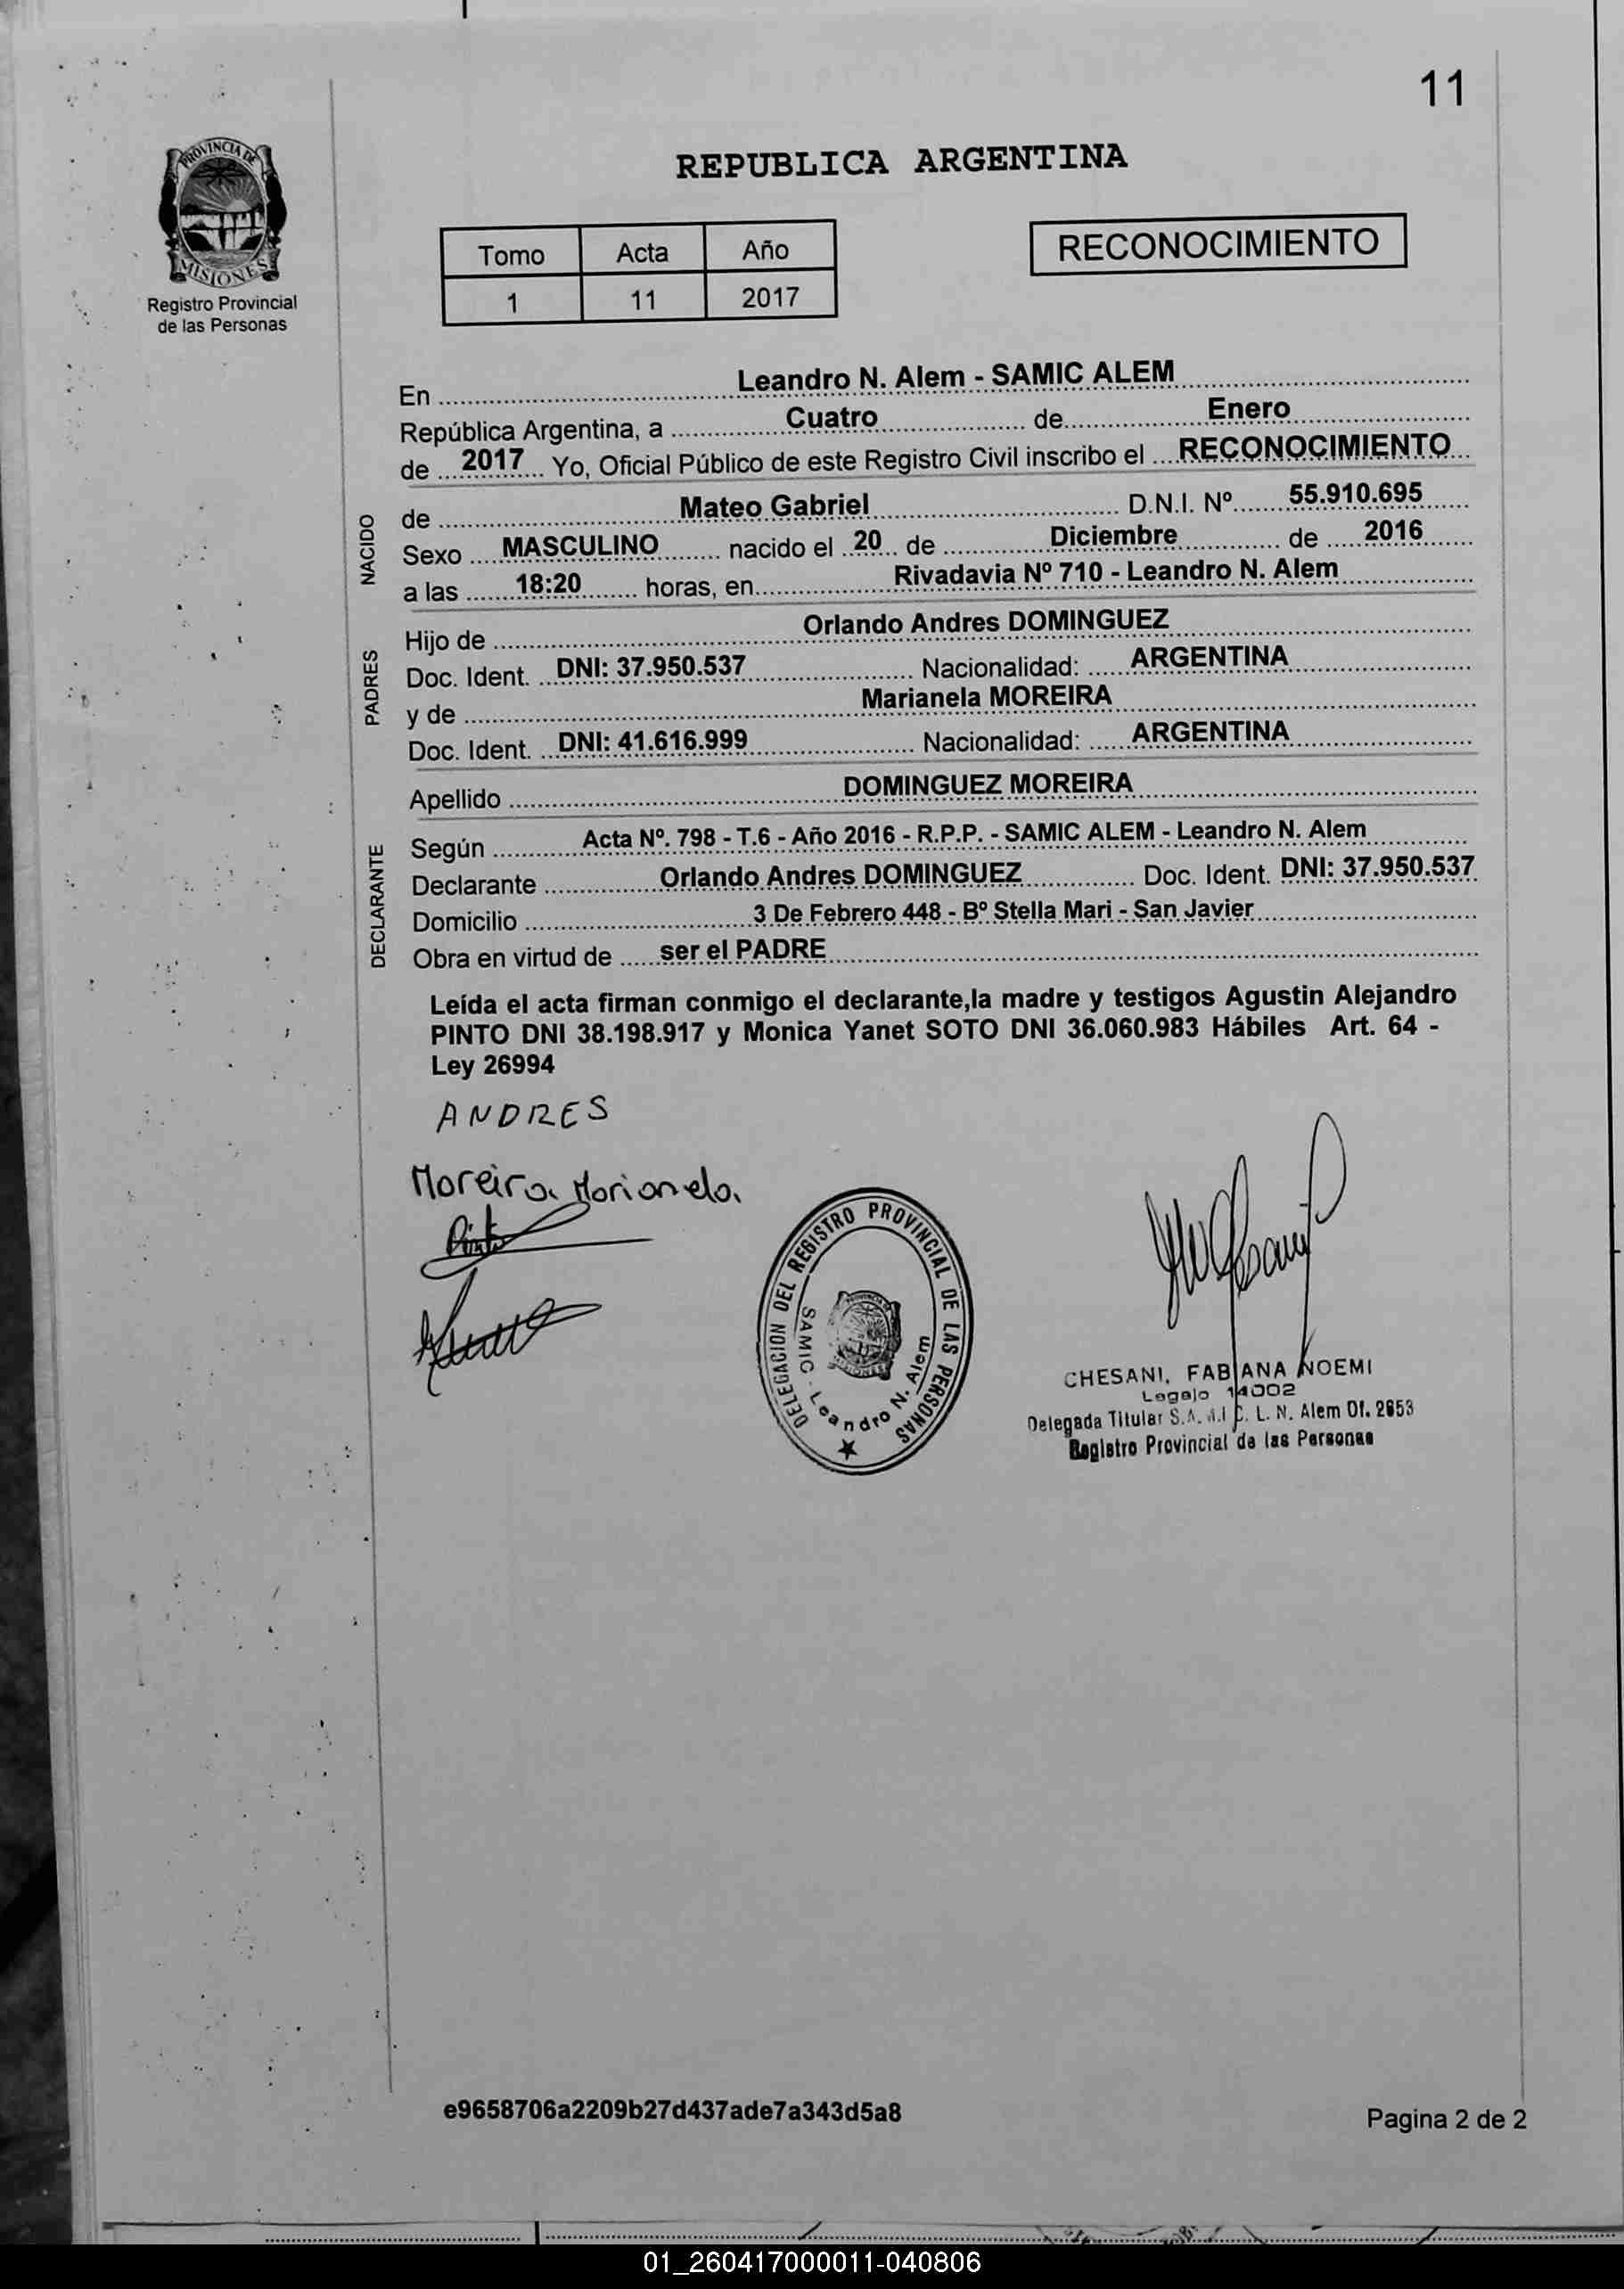 11
PROVINCIA DE
MISIONES
Registro Provincial
de las Personas
REPUBLICA ARGENTINA
Tomo Acta Año
1 11 2017
RECONOCIMIENTO
En Leandro N. Alem - SAMIC ALEM
República Argentina, a Cuatro de Enero
de 2017 Yo, Oficial Público de este Registro Civil inscribo el RECONOCIMIENTO
NACIDO
de Mateo Gabriel D.N.I. Nº 55.910.695
Sexo MASCULINO nacido el 20 de Diciembre de 2016
a las 18:20 horas, en Rivadavia Nº 710 - Leandro N. Alem
PADRES
Hijo de Orlando Andres DOMINGUEZ
Doc. Ident. DNI: 37.950.537 Nacionalidad: ARGENTINA
y de Marianela MOREIRA
Doc. Ident. DNI: 41.616.999 Nacionalidad: ARGENTINA
Apellido DOMINGUEZ MOREIRA
DECLARANTE
Según Acta Nº. 798 - T.6 - Año 2016 - R.P.P. - SAMIC ALEM - Leandro N. Alem
Declarante Orlando Andres DOMINGUEZ Doc. Ident. DNI: 37.950.537
Domicilio 3 De Febrero 448 - Bº Stella Mari - San Javier
Obra en virtud de ser el PADRE
Leída el acta firman conmigo el declarante,la madre y testigos Agustin Alejandro
PINTO DNI 38.198.917 y Monica Yanet SOTO DNI 36.060.983 Hábiles Art. 64 -
Ley 26994
ANDRES
Moreira Marianela
Pinto
DELEGACION DEL REGISTRO PROVINCIAL DE LAS PERSONAS
SAMIC - Leandro N. Alem
CHESANI, FABIANA NOEMI
Legajo 14002
Delegada Titular S.A.M.I.C. L. N. Alem Of. 2653
Registro Provincial de las Personas
e9658706a2209b27d437ade7a343d5a8
Pagina 2 de 2
01_260417000011-040806